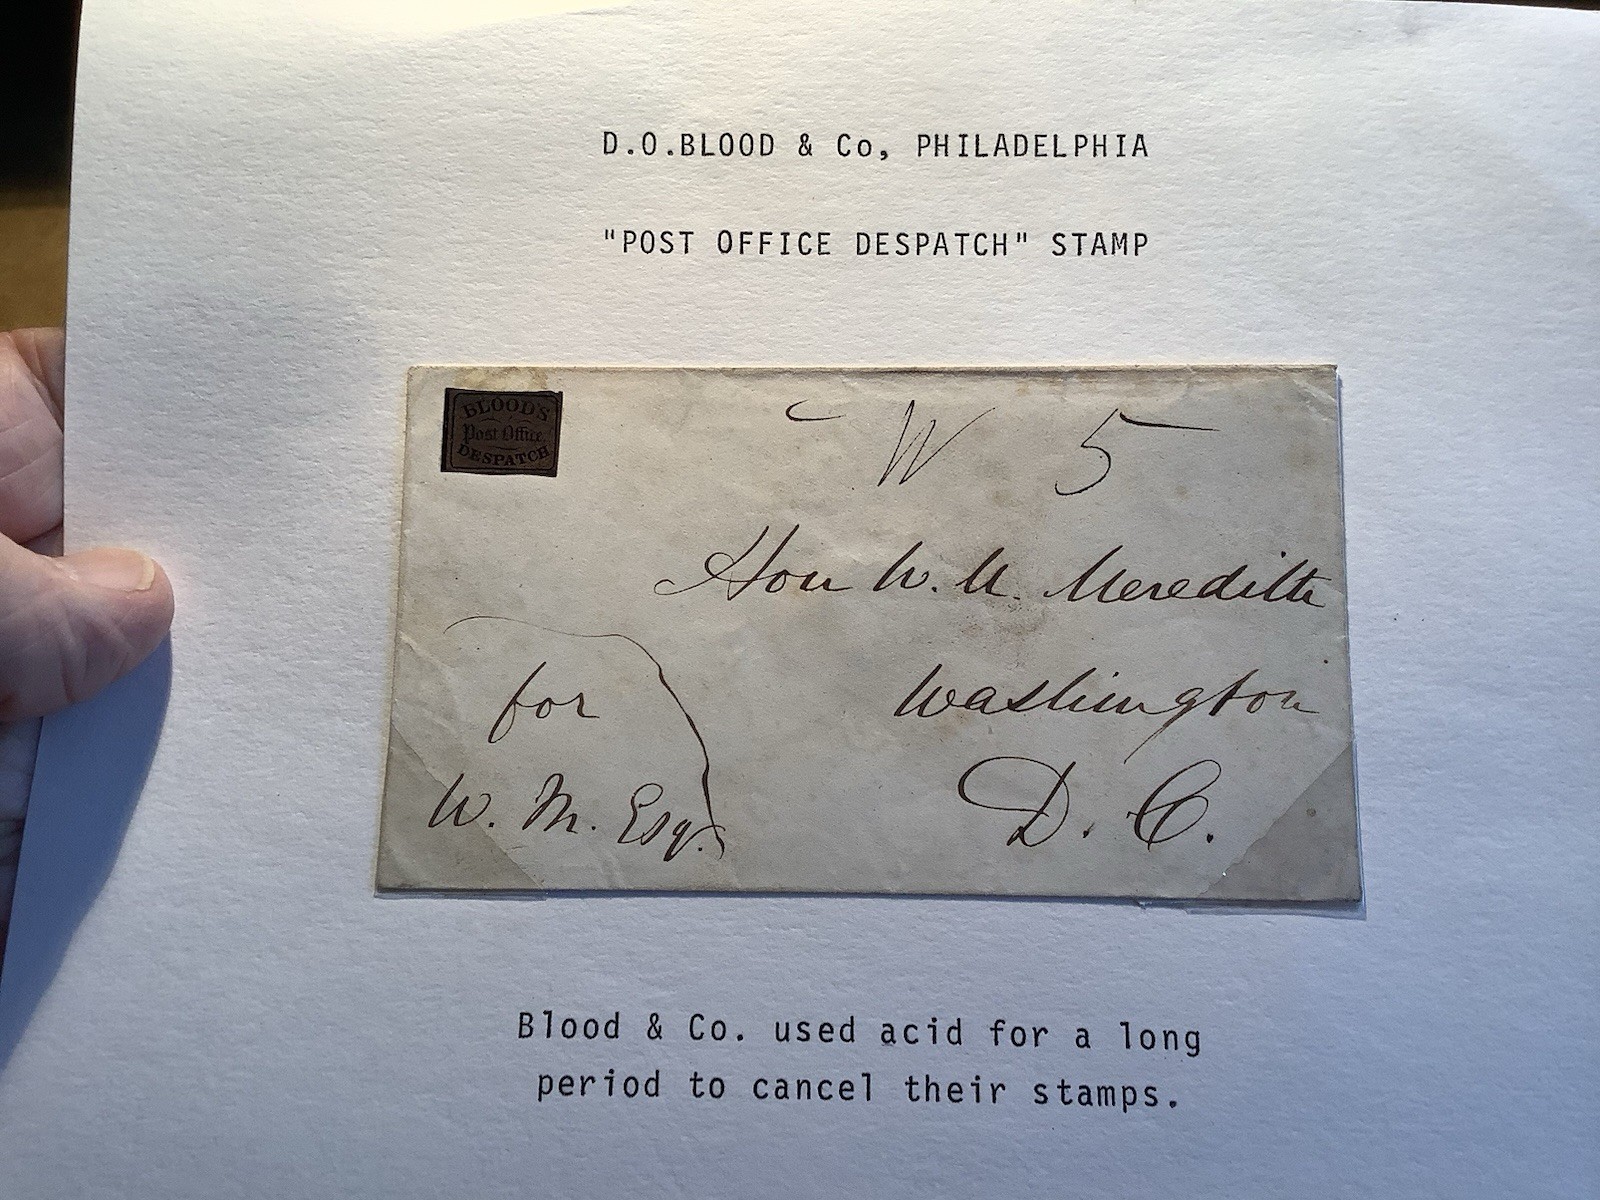 D.O.BLOOD & Co, PHILADELPHIA
"POST OFFICE DESPATCH" STAMP
BLOOD'S
Post Office
DESPATCH
W 5
Hon W. M. Meredith
Washington
D. C.
for
W. M. Esq.
Blood & Co. used acid for a long
period to cancel their stamps.